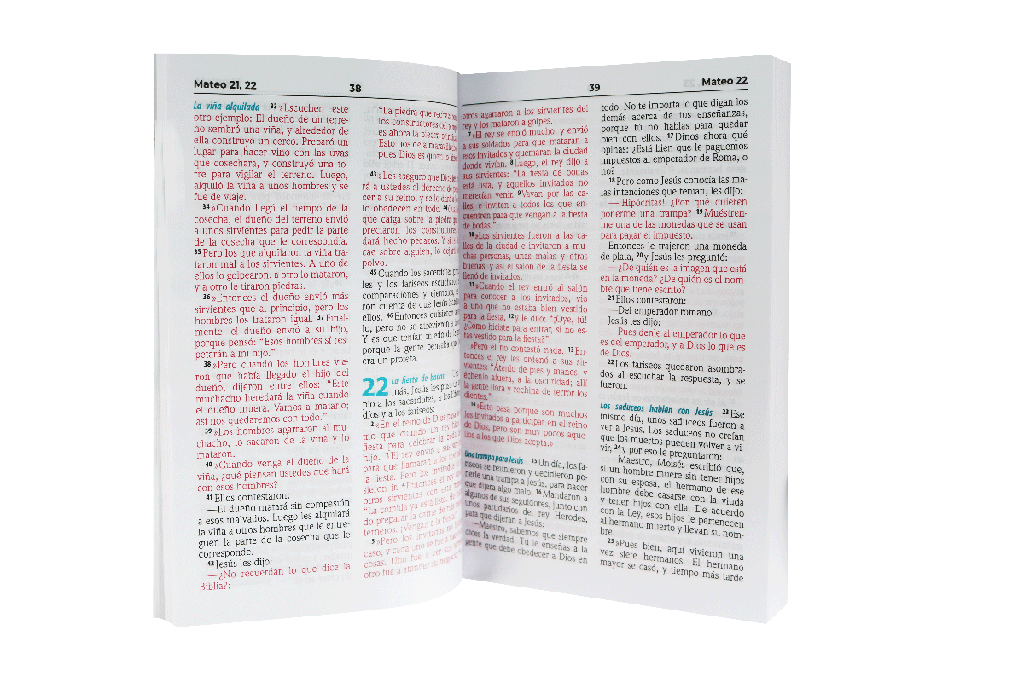 Mateo 21, 22
38
La viña alquilada 33 »Escuchen este
otro ejemplo: El dueño de un terre-
no sembró una viña, y alrededor de
ella construyó un cerco. Preparó un
lugar para hacer vino con las uvas
que cosechara, y construyó una to-
rre para vigilar el terreno. Luego,
alquiló la viña a unos hombres y se
fue de viaje.
34 »Cuando llegó el tiempo de la
cosecha, el dueño del terreno envió
a unos sirvientes para pedir la parte
de la cosecha que le correspondía.
35 Pero los que alquilaron la viña tra-
taron mal a los sirvientes. A uno de
ellos lo golpearon, a otro lo mataron,
y a otro le tiraron piedras.
36 »Entonces el dueño envió más
sirvientes que al principio, pero los
hombres los trataron igual. 37 Final-
mente, el dueño envió a su hijo,
porque pensó: "Esos hombres sí res-
petarán a mi hijo."
38 »Pero cuando los hombres vie-
ron que había llegado el hijo del
dueño, dijeron entre ellos: "Este
muchacho heredará la viña cuando
el dueño muera. Vamos a matarlo;
así nos quedaremos con todo."
39 »Los hombres agarraron al mu-
chacho, lo sacaron de la viña y lo
mataron.
40 »Cuando venga el dueño de la
viña, ¿qué piensan ustedes que hará
con esos hombres?
41 Ellos contestaron:
—El dueño matará sin compasión
a esos malvados. Luego les alquilará
la viña a otros hombres que le entre-
guen la parte de la cosecha que le
corresponde.
42 Jesús les dijo:
—¿No recuerdan lo que dice la
Biblia?:
"La piedra que
los constructores
es ahora la piedra
Esto nos deja
pues Dios es quien lo
43 »Les aseguro que Dios les
rá a ustedes el derecho de
cer a su reino, y se lo dará a
lo obedecen en todo. 44
que caiga sobre la piedra que
preciaron los constructores
dará hecho pedazos. Y si
cae sobre alguien, lo
polvo.
45 Cuando los sacerdotes
les y los fariseos escucharon
comparaciones y ejemplos,
ron cuenta de que Jesús
ellos. 46 Entonces quisieron
lo, pero no se atrevieron a
Y es que tenían miedo de la
porque la gente pensaba que
era un profeta.
22 La fiesta de bodas
más, Jesús les puso
plo a los sacerdotes, a los
díos y a los fariseos:
2 »En el reino de Dios
mo que cuando un rey
fiesta para celebrar la boda
hijo. 3 El rey envió a sus
para que llamaran a los
la fiesta. Pero los invitados
sieron ir. 4 Entonces el rey
otros sirvientes con este
"La comida ya está
do preparar la carne de mis
terneros. ¡Vengan a la fiesta!
5 »Pero los invitados no
caso, y cada uno se fue a
cosas. Uno fue a ver sus
otro fue a atender su negocio,
39
Mateo 22
otros agarraron a los sirvientes del
rey y los mataron a golpes.
7 »El rey se enojó mucho, y envió
a sus soldados para que mataran a
esos invitados y quemaran la ciudad
donde vivían. 8 Luego, el rey dijo a
sus sirvientes: "La fiesta de bodas
está lista, y aquellos invitados no
merecían venir. 9 Vayan por las ca-
lles e inviten a todos los que en-
cuentren para que vengan a la fiesta
de bodas."
10 »Los sirvientes fueron a las ca-
lles de la ciudad e invitaron a mu-
chas personas, unas malas y otras
buenas; y así el salón de la fiesta se
llenó de invitados.
11 »Cuando el rey entró al salón
para conocer a los invitados, vio
a uno que no estaba bien vestido
para la fiesta, 12 y le dijo: "¡Oye, tú!
¿Cómo hiciste para entrar, si no es-
tás vestido para la fiesta?"
»Pero él no contestó nada. 13 En-
tonces el rey les ordenó a sus sir-
vientes: "Átenlo de pies y manos, y
échenlo afuera, a la oscuridad; allí
la gente llora y rechina de terror los
dientes."
14 »Esto pasa porque son muchos
los invitados a participar en el reino
de Dios, pero son muy pocos aque-
llos a los que Dios acepta.»
Una trampa para Jesús 15 Un día, los fa-
riseos se reunieron y decidieron po-
nerle una trampa a Jesús, para hacer
que dijera algo malo. 16 Mandaron a
algunos de sus seguidores, junto con
unos partidarios del rey Herodes,
para que dijeran a Jesús:
—Maestro, sabemos que siempre
dices la verdad. Tú le enseñas a la
gente que debe obedecer a Dios en
todo. No te importa lo que digan los
demás acerca de tus enseñanzas,
porque tú no hablas para quedar
bien con ellos. 17 Dinos ahora qué
opinas: ¿Está bien que le paguemos
impuestos al emperador de Roma, o
no?
18 Pero como Jesús conocía las ma-
las intenciones que tenían, les dijo:
—¡Hipócritas! ¿Por qué quieren
ponerme una trampa? 19 Muéstren-
me una de las monedas que se usan
para pagar el impuesto.
Entonces le trajeron una moneda
de plata, 20 y Jesús les preguntó:
—¿De quién es la imagen que está
en la moneda? ¿De quién es el nom-
bre que tiene escrito?
21 Ellos contestaron:
—Del emperador romano.
Jesús les dijo:
—Pues denle al emperador lo que
es del emperador, y a Dios lo que es
de Dios.
22 Los fariseos quedaron asombra-
dos al escuchar la respuesta, y se
fueron.
Los saduceos hablan con Jesús 23 Ese
mismo día, unos saduceos fueron a
ver a Jesús. Los saduceos no creían
que los muertos pueden volver a vi-
vir, 24 y por eso le preguntaron:
—Maestro, Moisés escribió que,
si un hombre muere sin tener hijos
con su esposa, el hermano de ese
hombre debe casarse con la viuda
y tener hijos con ella. De acuerdo
con la Ley, esos hijos le pertenecen
al hermano muerto y llevan su nom-
bre.
25 »Pues bien, aquí vivieron una
vez siete hermanos. El hermano
mayor se casó, y tiempo más tarde